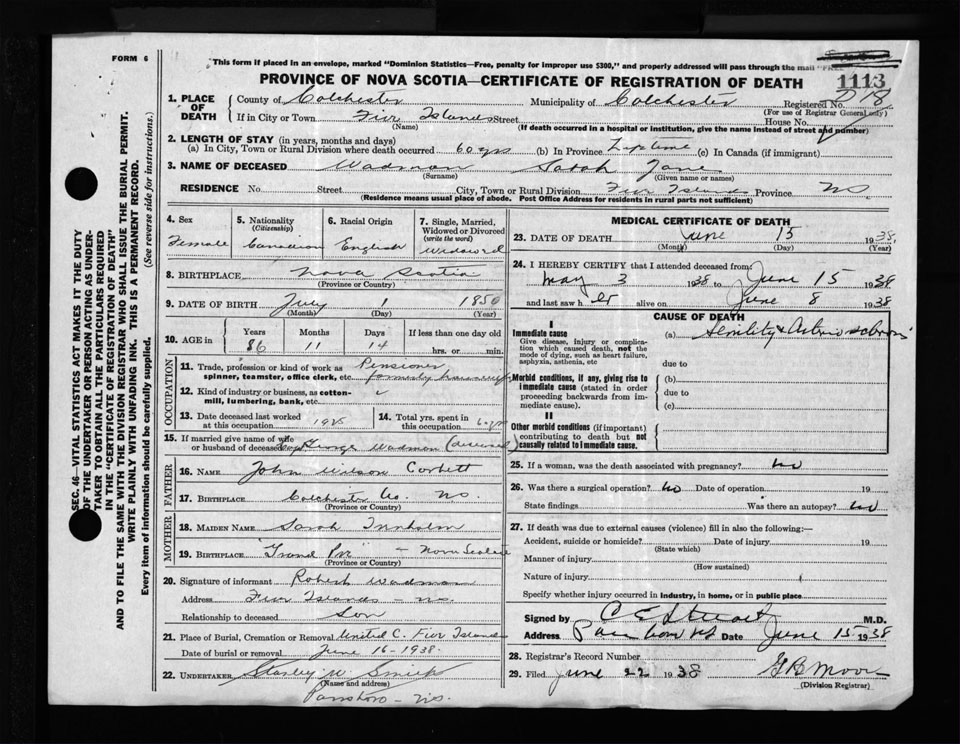 FORM 6
This form if placed in an envelope, marked "Dominion Statistics—Free, penalty for improper use $300," and properly addressed will pass through the mail "FREE
PROVINCE OF NOVA SCOTIA—CERTIFICATE OF REGISTRATION OF DEATH
1113
1. PLACE OF DEATH
County of Colchester Municipality of Colchester Registered No.
(For use of Registrar General only)
If in City or Town Five Islands Street House No.
(Name) (If death occurred in a hospital or institution, give the name instead of street and number)
2. LENGTH OF STAY (in years, months and days)
(a) In City, Town or Rural Division where death occurred 60 yrs (b) In Province Lifetime (c) In Canada (if immigrant)
3. NAME OF DECEASED Wadman Sarah Jane
(Surname) (Given name or names)
RESIDENCE No. Street City, Town or Rural Division Five Islands Province NS
(Residence means usual place of abode. Post Office Address for residents in rural parts not sufficient)
4. Sex Female
5. Nationality (Citizenship) Canadian
6. Racial Origin English
7. Single, Married, Widowed or Divorced (write the word) Widowed
8. BIRTHPLACE Nova Scotia
(Province or Country)
9. DATE OF BIRTH July 1 185
(Month) (Day) (Year)
10. AGE in Years Months Days If less than one day old
86 11 14 hrs. or min.
OCCUPATION
11. Trade, profession or kind of work as spinner, teamster, office clerk, etc. Pensioner
formerly
12. Kind of industry or business, as cotton-mill, lumbering, bank, etc.
13. Date deceased last worked at this occupation 1925
14. Total yrs. spent in this occupation
15. If married give name of wife or husband of deceased George Wadman (deceased)
FATHER
16. NAME John Wilson Corbett
17. BIRTHPLACE Colchester Co. NS.
(Province or Country)
MOTHER
18. MAIDEN NAME Sarah
19. BIRTHPLACE Grand Pre — Nova Scotia
(Province or Country)
20. Signature of informant Robert Wadman
Address Five Islands — NS.
Relationship to deceased Son
21. Place of Burial, Cremation or Removal United C. Five Islands
Date of burial or removal June 16 - 1938.
22. UNDERTAKER Stanley W. Smith
(Name and address)
Parrsboro — NS.
MEDICAL CERTIFICATE OF DEATH
23. DATE OF DEATH June 15 1938.
(Month) (Day) (Year)
24. I HEREBY CERTIFY that I attended deceased from:
May 3 1938 to June 15 1938
and last saw her alive on June 8 1938
CAUSE OF DEATH
I
Immediate cause
Give disease, injury or complication which caused death, not the mode of dying, such as heart failure, asphyxia, asthenia, etc
(a) Senility &
due to
Morbid conditions, if any, giving rise to immediate cause (stated in order proceeding backwards from immediate cause).
(b)
due to
(c)
II
Other morbid conditions (if important) contributing to death but not causally related to immediate cause.
25. If a woman, was the death associated with pregnancy? no
26. Was there a surgical operation? no Date of operation 19
State findings Was there an autopsy? no
27. If death was due to external causes (violence) fill in also the following:—
Accident, suicide or homicide? Date of injury 19
(State which)
Manner of injury
(How sustained)
Nature of injury
Specify whether injury occurred in Industry, in home, or in public place
Signed by C E Stuart M.D.
Address Date June 15 1938
28. Registrar's Record Number
29. Filed June 22 1938 G B Moore
(Division Registrar)
SEC. 46—VITAL STATISTICS ACT MAKES IT THE DUTY
OF THE UNDERTAKER OR PERSON ACTING AS UNDER-
TAKER TO OBTAIN ALL THE PARTICULARS REQUIRED
IN THE "CERTIFICATE OF REGISTRATION OF DEATH"
AND TO FILE THE SAME WITH THE DIVISION REGISTRAR WHO SHALL ISSUE THE BURIAL PERMIT.
WRITE PLAINLY WITH UNFADING INK. THIS IS A PERMANENT RECORD.
Every item of information should be carefully supplied. (See reverse side for instructions.)